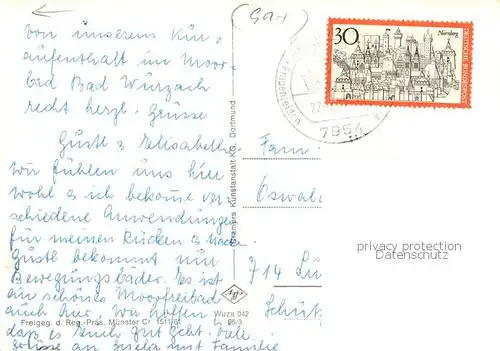 (Gar)
von unserem Kur=
aufenthalt im Moor
bad Bad Wurzach
recht herzl. Grüsse
Gustl & Elisabeth
Wir fühlen uns hier
wohl & ich bekomme ver
schiedene Anwendungen
für meinen Rücken & Nacken
Gustl bekommt nur
Bewegungsbäder. Es ist
ein schönes Moorfreibad
auch hier. Wir hoffen
dass es Euch gut geht. Viele
Grüsse an Gisela mit Familie
Freigeg. d. Reg.-Präs. Münster Cr. 1511/61
Cramers Kunstanstalt KG, Dortmund
Agfa
Wuza 042
66/3
30
Nürnberg
DEUTSCHE BUNDESPOST
7954
Fam
Oswal
714 Lu
Schütz
privacy protection
Datenschutz